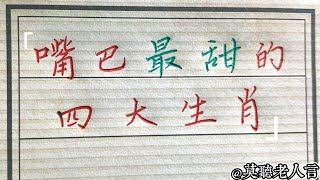 「嘴巴最甜的
四大生肖」
@莫聽老人言